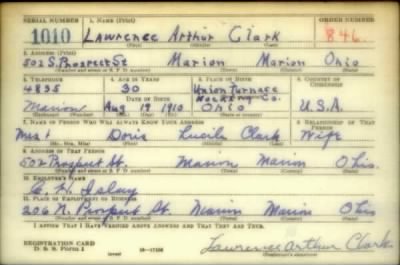 SERIAL NUMBER 1. NAME (Print) ORDER NUMBER
1010 Lawrence Arthur Clark 846
(First) (Middle) (Last)
2. ADDRESS (Print)
502 S. Prospect St Marion Marion Ohio
(Number and street or R. F. D. number) (Town) (County) (State)
3. TELEPHONE 4. AGE IN YEARS 5. PLACE OF BIRTH 6. COUNTRY OF CITIZENSHIP
4835 30 Union Furnace
DATE OF BIRTH Hocking Co.
Marion Aug 19 1910 Ohio U.S.A.
7. NAME OF PERSON WHO WILL ALWAYS KNOW YOUR ADDRESS 8. RELATIONSHIP OF THAT PERSON
Mrs Doris Lucile Clark Wife
(Mr., Mrs., Miss) (First) (Middle) (Last)
9. ADDRESS OF THAT PERSON
502 Prospect St. Marion Marion Ohio.
(Number and street or R. F. D. number) (Town) (County) (State)
10. EMPLOYER'S NAME
C. H. Isaly
11. PLACE OF EMPLOYMENT OR BUSINESS
206 N. Prospect St. Marion Marion Ohio
(Number and street or R. F. D. number) (Town) (County) (State)
I AFFIRM THAT I HAVE VERIFIED ABOVE ANSWERS AND THAT THEY ARE TRUE.
REGISTRATION CARD
D. S. S. Form 1 16—17105 Lawrence Arthur Clark
(over) (Registrant's signature)